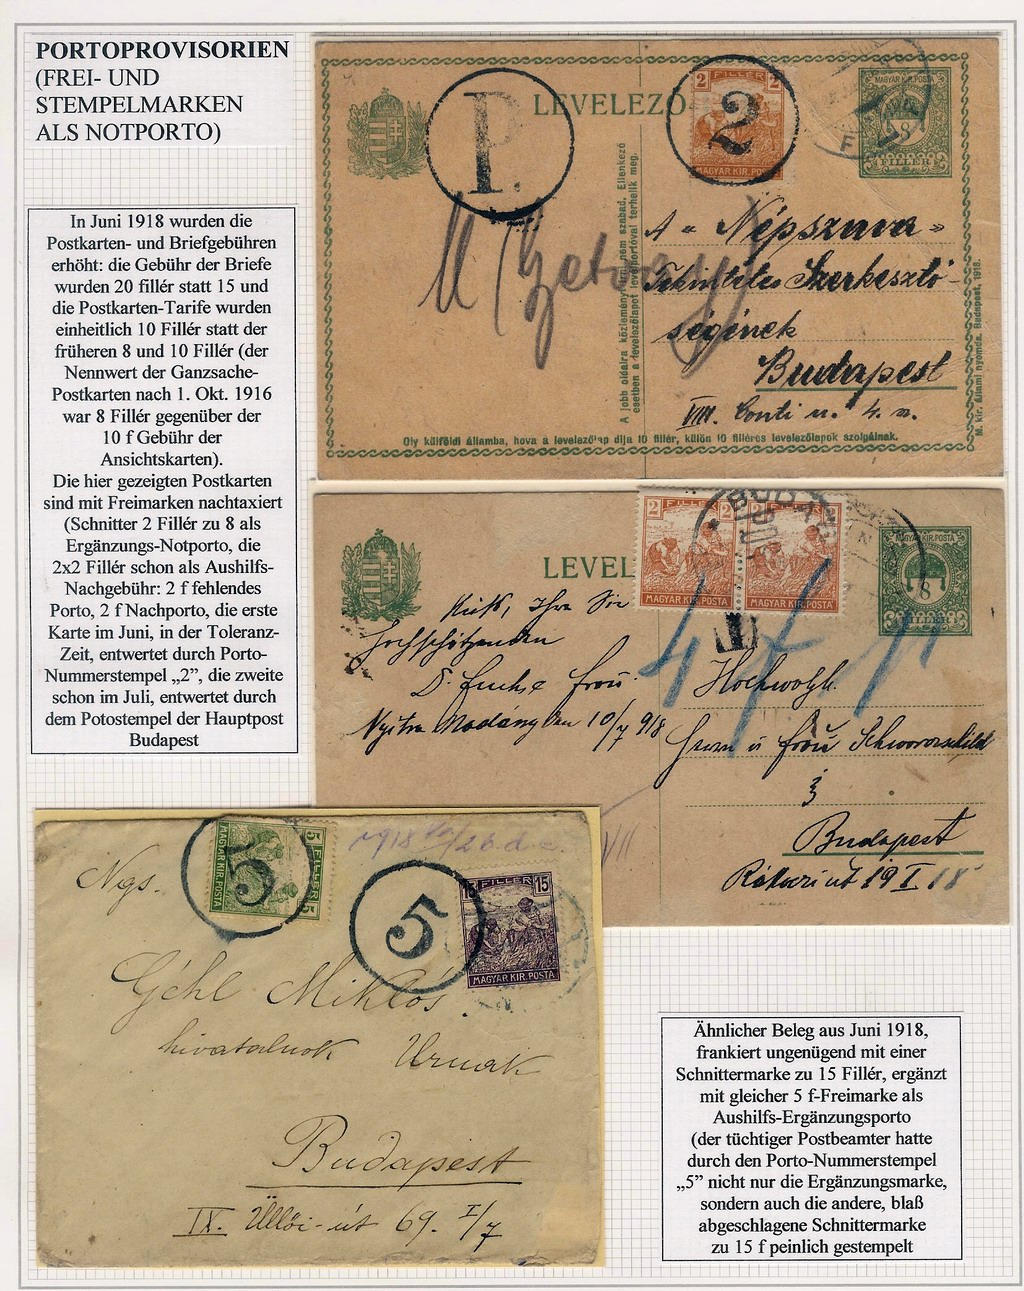 PORTOPROVISORIEN
(FREI- UND
STEMPELMARKEN
ALS NOTPORTO)
In Juni 1918 wurden die
Postkarten- und Briefgebühren
erhöht: die Gebühr der Briefe
wurden 20 fillér statt 15 und
die Postkarten-Tarife wurden
einheitlich 10 Fillér statt der
früheren 8 und 10 Fillér (der
Nennwert der Ganzsache-
Postkarten nach 1. Okt. 1916
war 8 Fillér gegenüber der
10 f Gebühr der
Ansichtskarten).
Die hier gezeigten Postkarten
sind mit Freimarken nachtaxiert
(Schnitter 2 Fillér zu 8 als
Ergänzungs-Notporto, die
2x2 Fillér schon als Aushilfs-
Nachgebühr: 2 f fehlendes
Porto, 2 f Nachporto, die erste
Karte im Juni, in der Toleranz-
Zeit, entwertet durch Porto-
Nummerstempel „2”, die zweite
schon im Juli, entwertet durch
dem Potostempel der Hauptpost
Budapest
P.
LEVELEZŐ
2 FILLER
2
MAGYAR KIR. POSTA
MAGYAR KIR. POSTA
8
FILLER
A « Népszava »
Tekintetes Szerkesztő-
ségének
Budapest
VIII. Conti u. 4. sz.
A jobb oldalra közlemény nem szabad. Ellenkező
esetben a levelezőlapot levélportóval terhelik meg.
Oly külföldi államba, hova a levelezőlap díja 10 fillér, külön 10 filléres levelezőlapok szolgálnak.
M. kir. állami nyomda. Budapest, 1918.
LEVEL
2 FILLER 2
MAGYAR KIR. POSTA
2 FILLER 2
MAGYAR KIR. POSTA
BUDAP
MAGYAR KIR. POSTA
8
FILLER
T
4 f
Ihre Sie
Hochschätzenden
D. Fuchs Frau
Nyitra 10/7 918
Hochwolg.
Herrn u Frau
Budapest
út 19 I 18
5 FILLER 5
MAGYAR KIR. POSTA
5
5
15 FILLER 15
MAGYAR KIR. POSTA
1918
Ngs.
Géhl Miklós
hivatalnok Urnak
Budapest
IX. Üllői-út 69. I/7
Ähnlicher Beleg aus Juni 1918,
frankiert ungenügend mit einer
Schnittermarke zu 15 Fillér, ergänzt
mit gleicher 5 f-Freimarke als
Aushilfs-Ergänzungsporto
(der tüchtiger Postbeamter hatte
durch den Porto-Nummerstempel
„5” nicht nur die Ergänzungsmarke,
sondern auch die andere, blaß
abgeschlagene Schnittermarke
zu 15 f peinlich gestempelt